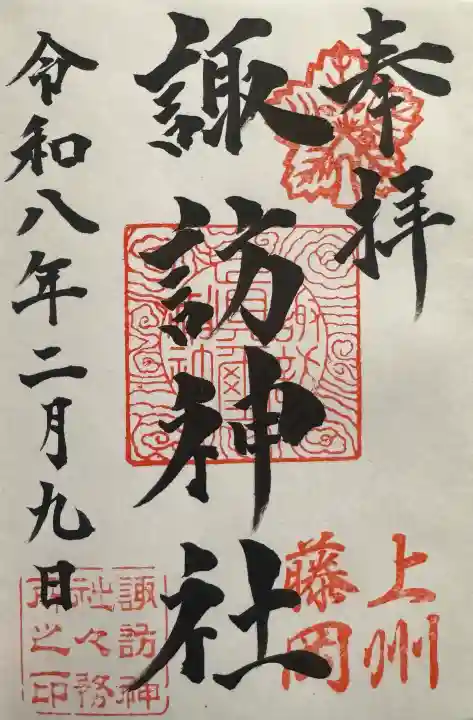 奉拝
上州
藤岡
諏訪神社
令和八年二月九日
諏訪神
社々務
所之印